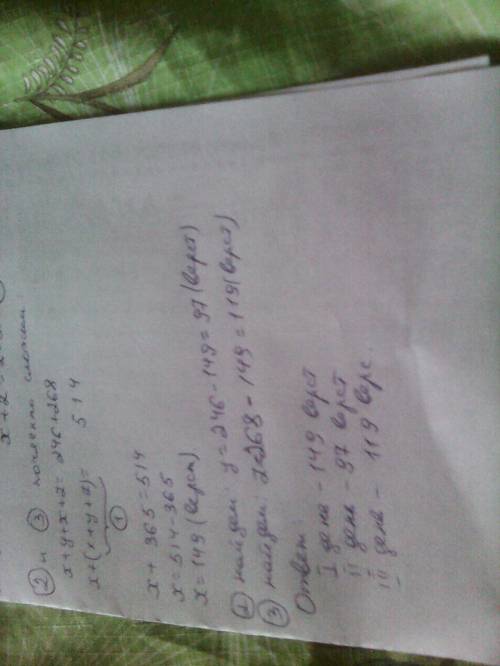 x + z = 2
② и ③ почленно сложим:
x+y+x+z= 246+268
x+(x+y+z)= 514
①
x + 365 = 514
x = 514 - 365
x = 149 (верст)
② найдем: y = 246 - 149 = 97 (верст)
③ найдем: z=268 - 149 = 119 (верст)
Ответ:
I день - 149 верст
II день - 97 верст
III день - 119 верс.